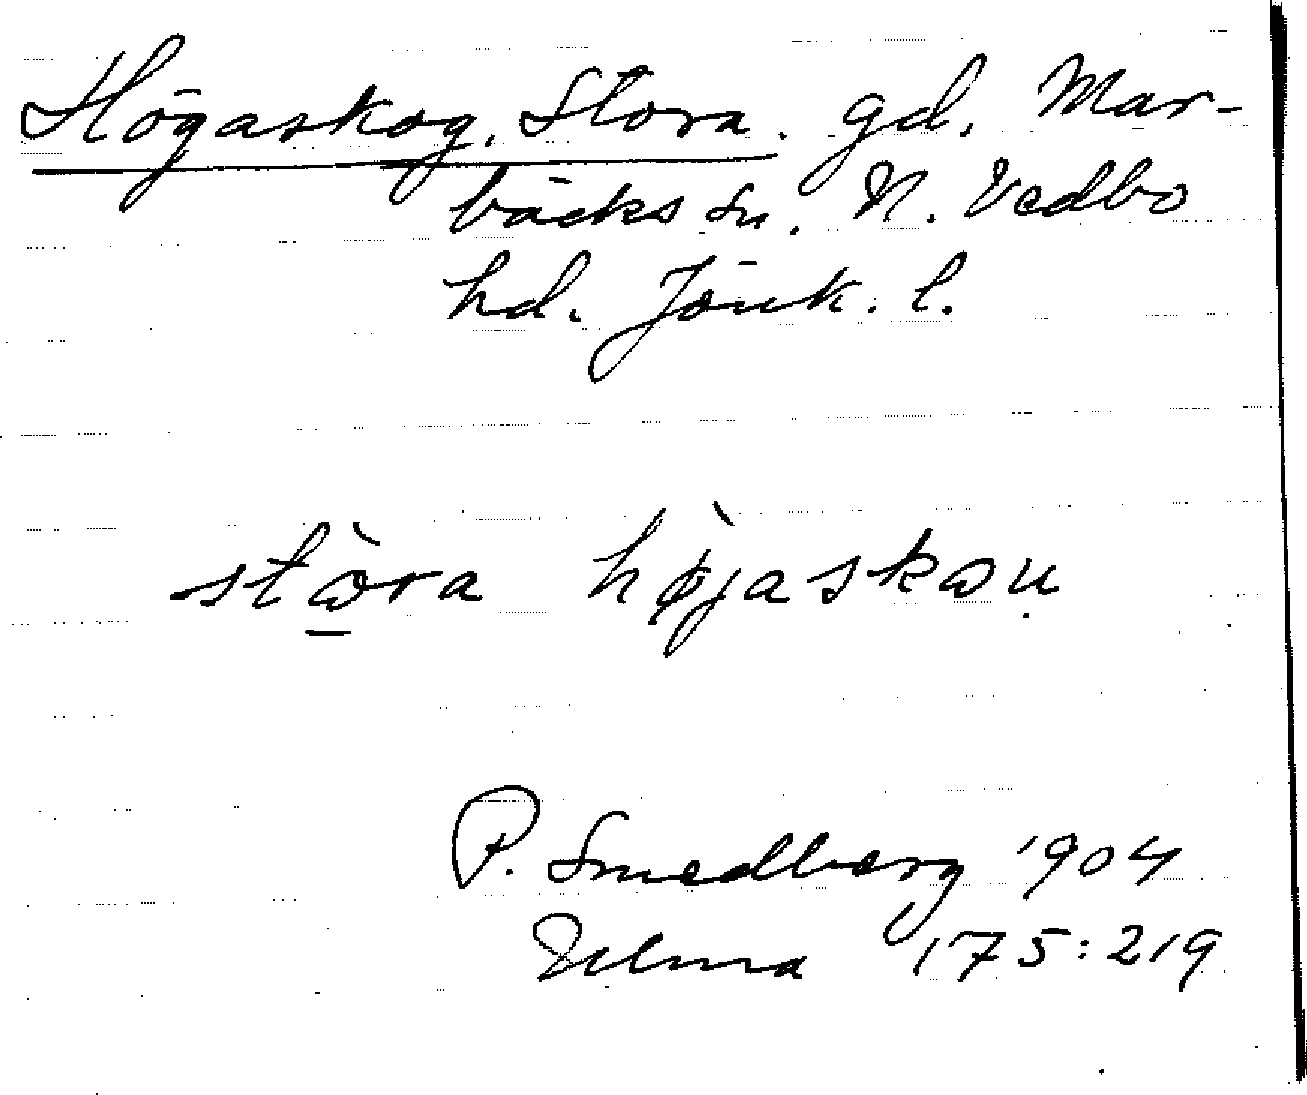 Högaskog, Stora. gd. Mar-
bäcks sn. N. Vedbo
hd. Jönk. l.
stòra hø̀jaskou
P. Smedberg 1904
Ulma 175:219